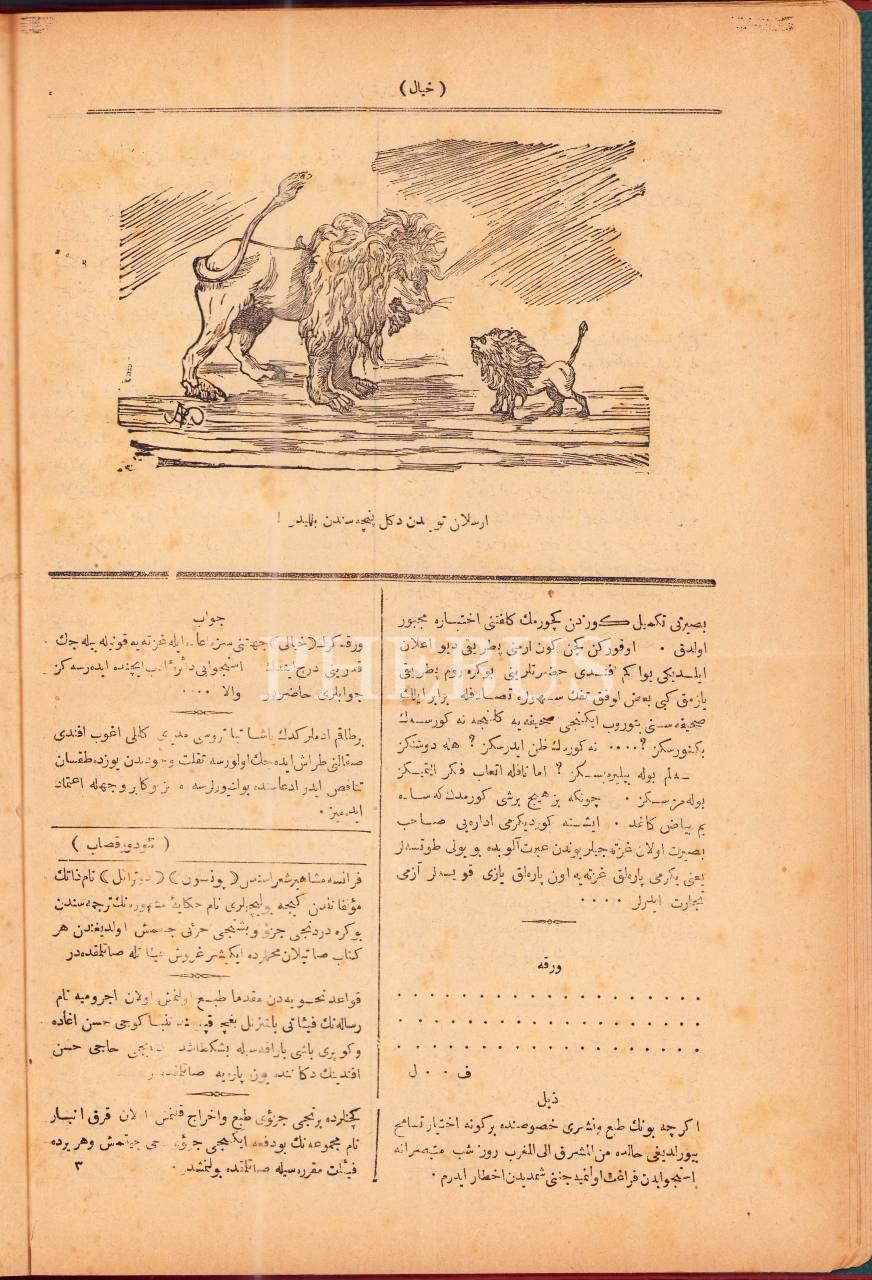 ( خیال )
ارسلان تویندن دكل پنچه سندن بللیدر !
بصیرتی تكمیل كوزدن كچورمك كلفتنی اختیاره مجبور
اولدق . اوقوركن كچن كون ارمنی پطریقی دیو اعلان
ایلدیكی بواكم افندی حضرتلرینی بوكره روم پطریقی
یازمق كبی بعض اوفق تفك سهوره تصادفله برابر ایلك
صحیفه سنی بتوروب ایكنجی صحیفه یه كلنجه نه كورسه ك
بكنورسكز ؟ .... نه كوردك ظن ایدرسكز ؟ هله دوشنكز
بوله بیلیرمیسكز ؟ اما نافله اتعاب فكر ایتمیكز
بوله مزسكز . چونكه بز هیچ برشی كورمدك كه ساده
بم بیاض كاغد . ایشته كوردیكز می اداره یی صاحب
بصیرت اولان غزته جیلر بوندن عبرت آلوبده بو یولی طوتسه لر
یعنی یكرمی پاره لق غزته یه اون پاره لق یازی قویسه لر آزمی
تجارت ایدرلر ....
ورقه
ف . . ل
ذیل
اكرچه بونك طبع ونشری خصوصنده بركونه اختیار تسامح
بیورلدیغی حالده من المشرق الی المغرب روز شب متبصرانه
استجوابدن فراغت اولنمیه جغنی شمدیدن اخطار ایدرم .
جواب
ورقه كزك (خیالی) جهتنی سزه اعاده ایله غزته یه قونیله بیله جك
قدرینی درج ایتدك استجوابی دائره ادب ایچنده ایدرسه كز
جوابلری حاضردر والا ....
برطاقم ادملر كدك پاشا تیاتروسی مدیری كللی اغوب افندی
صقالنی طراش ایده جك اولورسه ثقلت وجودندن یوزده طقسان
تناقص ایدر ادعاسنده بولنیورلرسه ده بز وكابر وجهله اعتماد
ایده میز .
( تئودور قصاب )
فرانسه مشاهیر شعراسندن (پونسون) (دوترائل) نام ذاتك
مؤلفاتندن كیجه یولجیلری نام حكایهٔ مشهوره نك ترجمه سندن
بوكره دردنجی جزؤ وبشنجی جزئی چیقمش اولدیغندن هر
كتاب صاتیلان محللرده ایكیشر غروش فیئاتله صاتلقده در
قواعد نحویه دن مقدما طبع اولنمش اولان اجرومیه نام
رساله نك فیئاتی
وكوپری باشی
افندینك دكاننده یون پاره یه صاتلقده در
كچنلرده برنجی جزؤی طبع واخراج قلنمش اولان قرق انبار
نام مجموعه نك بودفعه ایكنجی جزؤی دخی چیقمش وهر یرده
فیئات مقرره سیله صاتلقده بولنمشدر . ٣